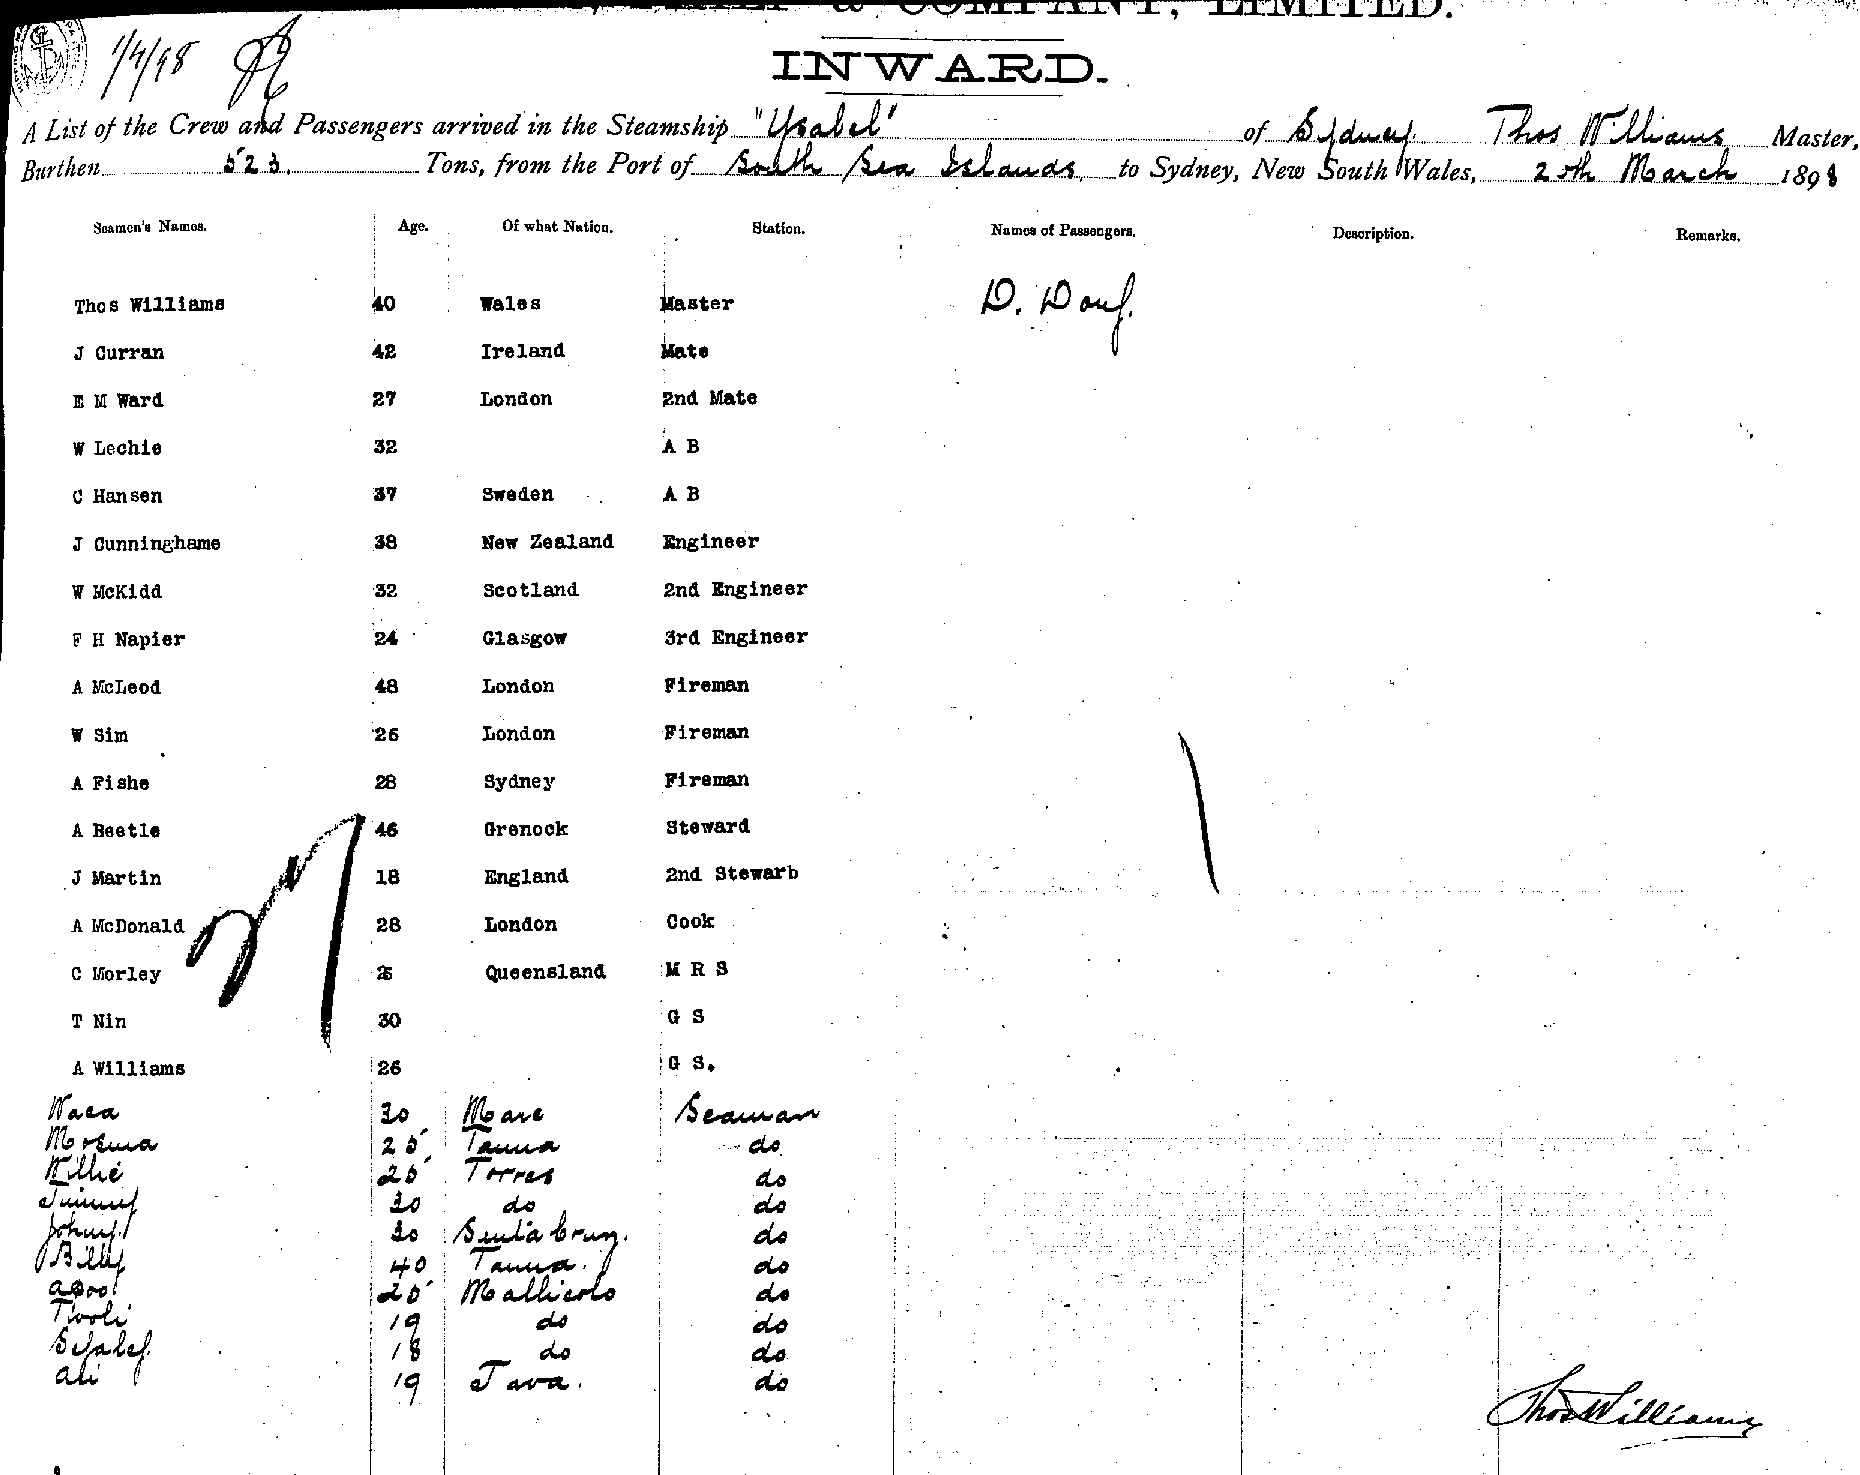 & COMPANY, LIMITED.
1/4/98
INWARD.
A List of the Crew and Passengers arrived in the Steamship "Ysabel" of Sydney Thos Williams Master,
Burthen 523. Tons, from the Port of South Sea Islands to Sydney, New South Wales, March 1898
Seamen's Names. Age. Of what Nation. Station. Names of Passengers. Description. Remarks.
Thos Williams 40 Wales Master D.
J Curran 42 Ireland Mate
E M Ward 27 London 2nd Mate
W Lechie 32 A B
C Hansen 37 Sweden A B
J Cunninghame 38 New Zealand Engineer
W McKidd 32 Scotland 2nd Engineer
F H Napier 24 Glasgow 3rd Engineer
A McLeod 48 London Fireman
W Sim 26 London Fireman
A Fishe 28 Sydney Fireman
A Beetle 46 Grenock Steward
J Martin 18 England 2nd Stewarb
A McDonald 28 London Cook
C Morley Queensland M R S
T Nin 30 G S
A Williams 26 G S.
Waea 30 Mare Seaman
25 Tanna do
Willie 25 Torres do
Jimmy 30 do do
Johny 30 Santa Cruz. do
Billy 40 Tanna. do
25 Mallicolo do
Tivoli 19 do do
18 do do
Ali 19 Java. do
Thos Williams